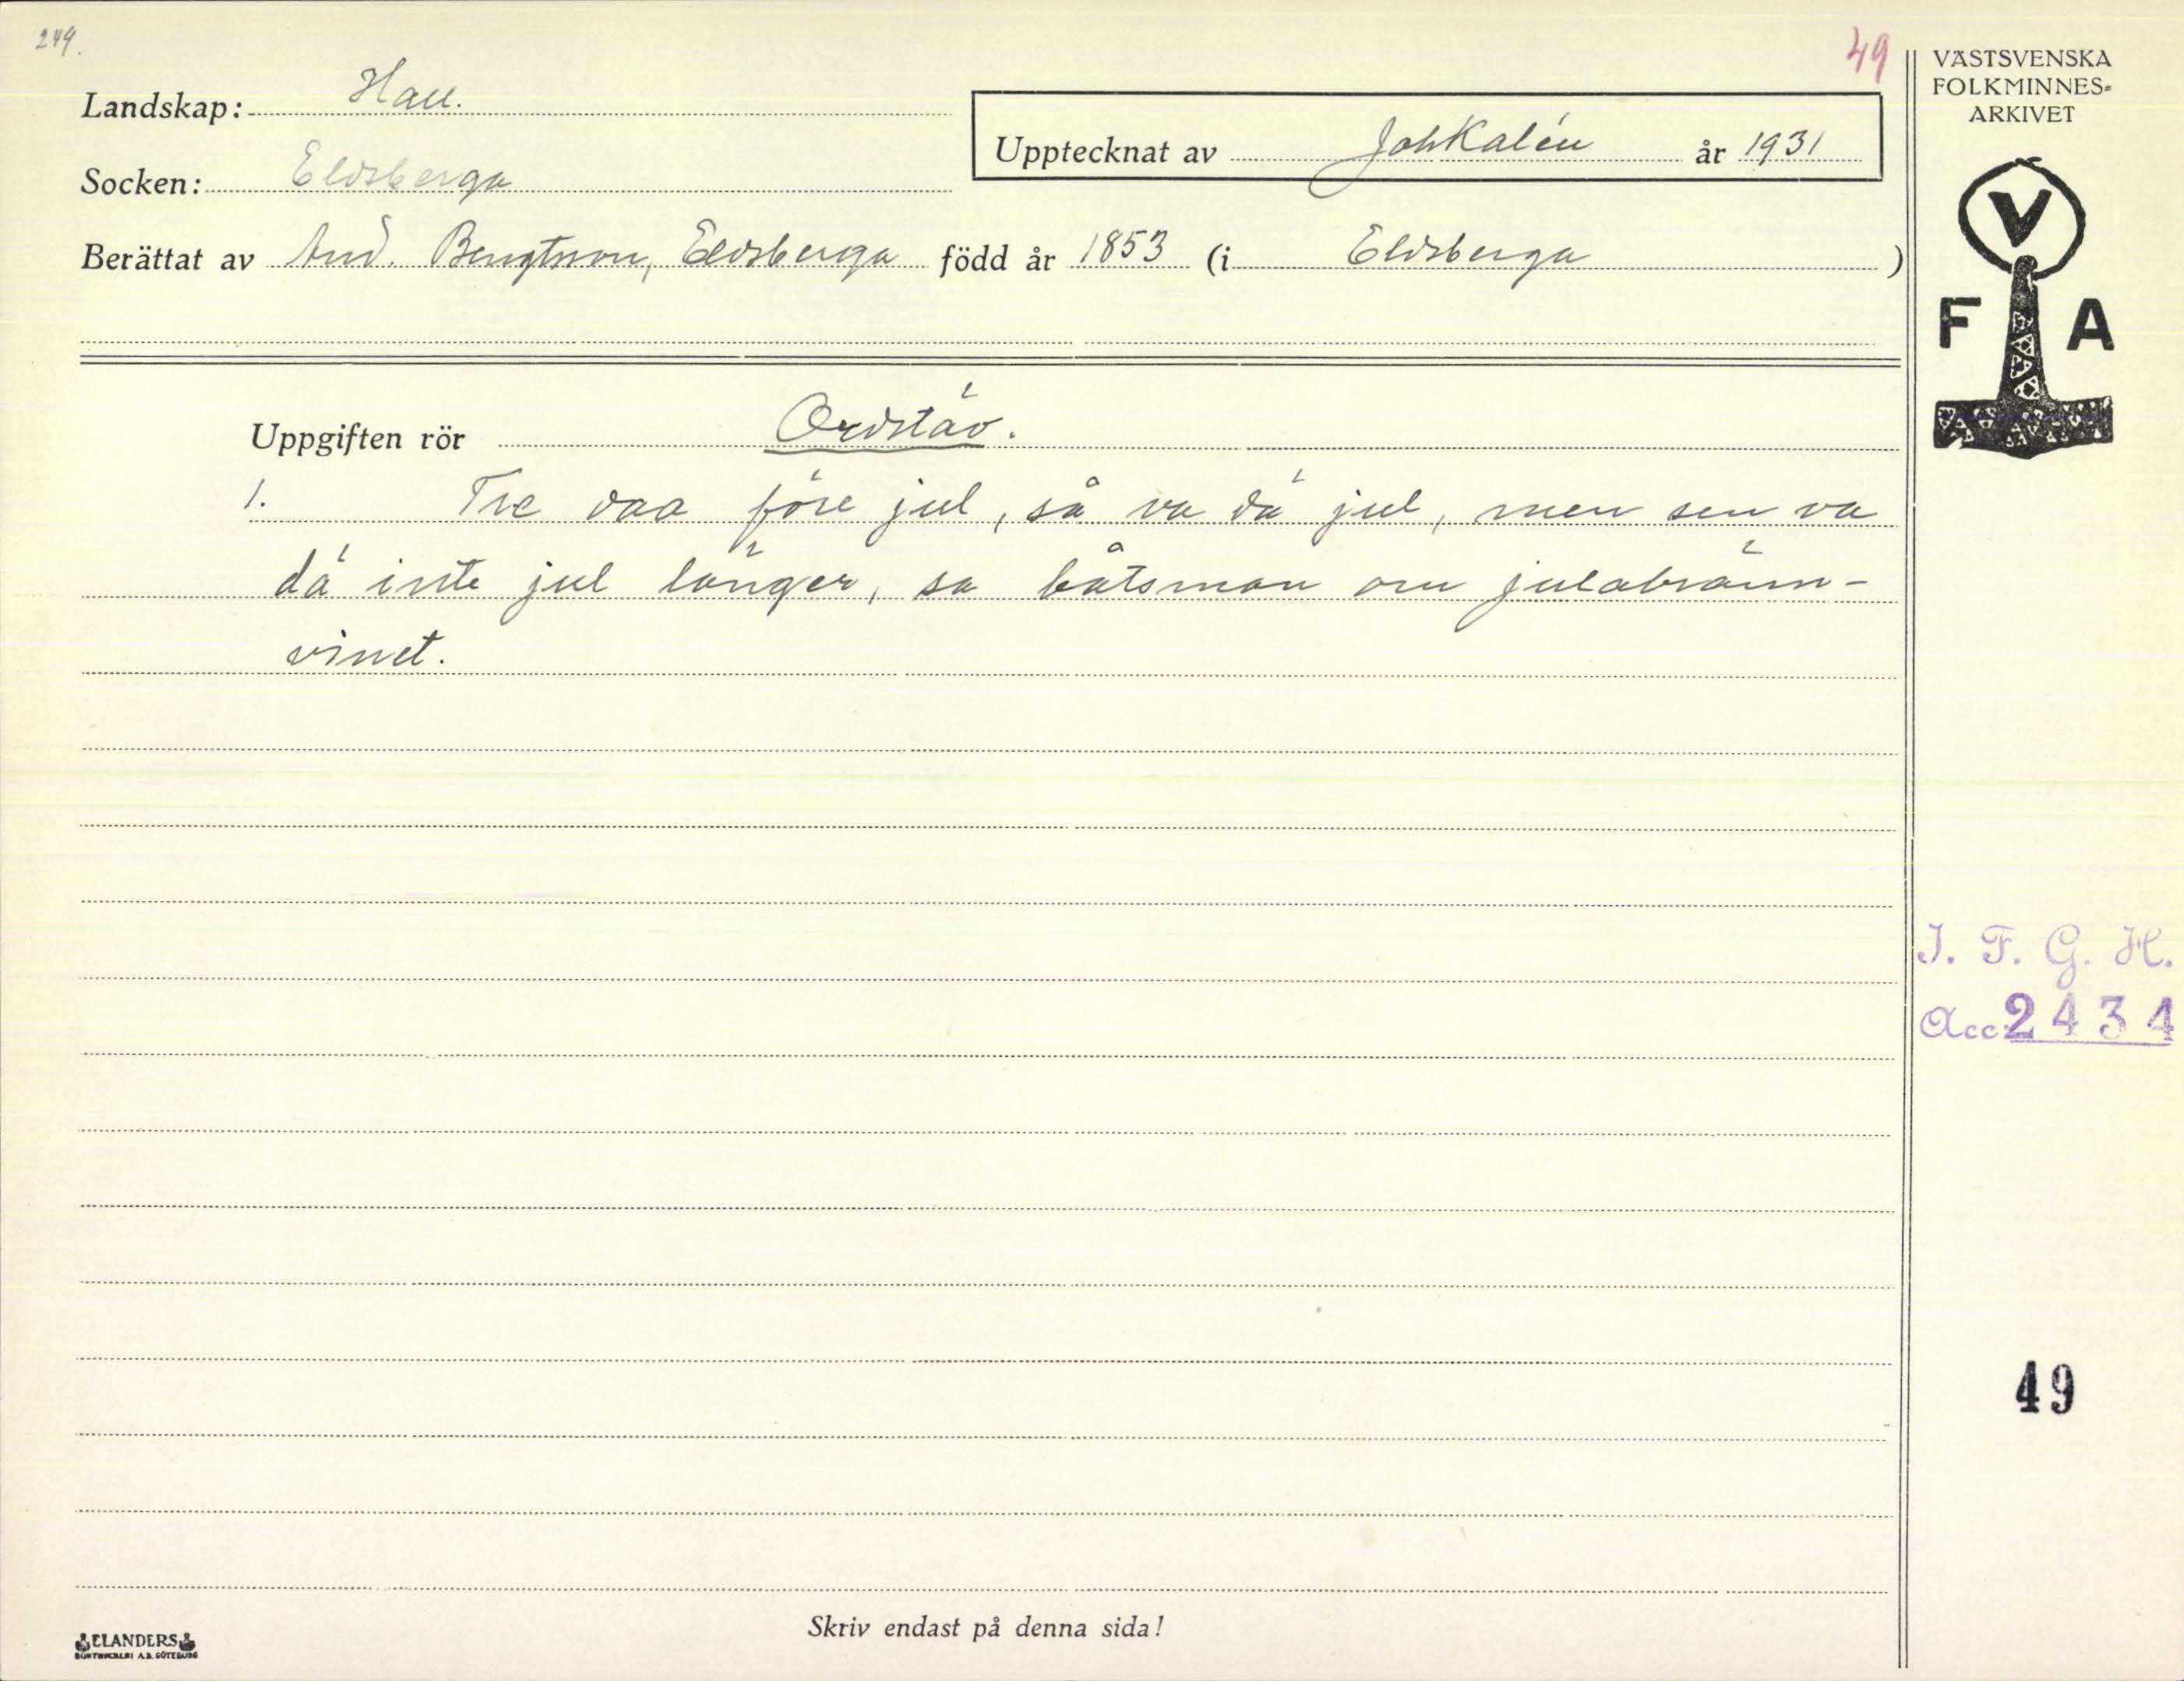 249.
49
Landskap: Hall.
Upptecknat av Joh Kalén år 1931
Socken: Eldsberga
Berättat av And. Bengtsson, Eldsberga född år 1853 (i Eldsberga )
Uppgiften rör Ordstäv.
1. Tre daa före jul, så va dä jul, men sen va
dä inte jul länger, sa båtsman om julabränn-
vinet.
Skriv endast på denna sida!
ELANDERS
BOKTRYCKERI A.B. GÖTEBORG
VÄSTSVENSKA
FOLKMINNES-
ARKIVET
V
F A
I. F. G. H.
Acc. 2434
49